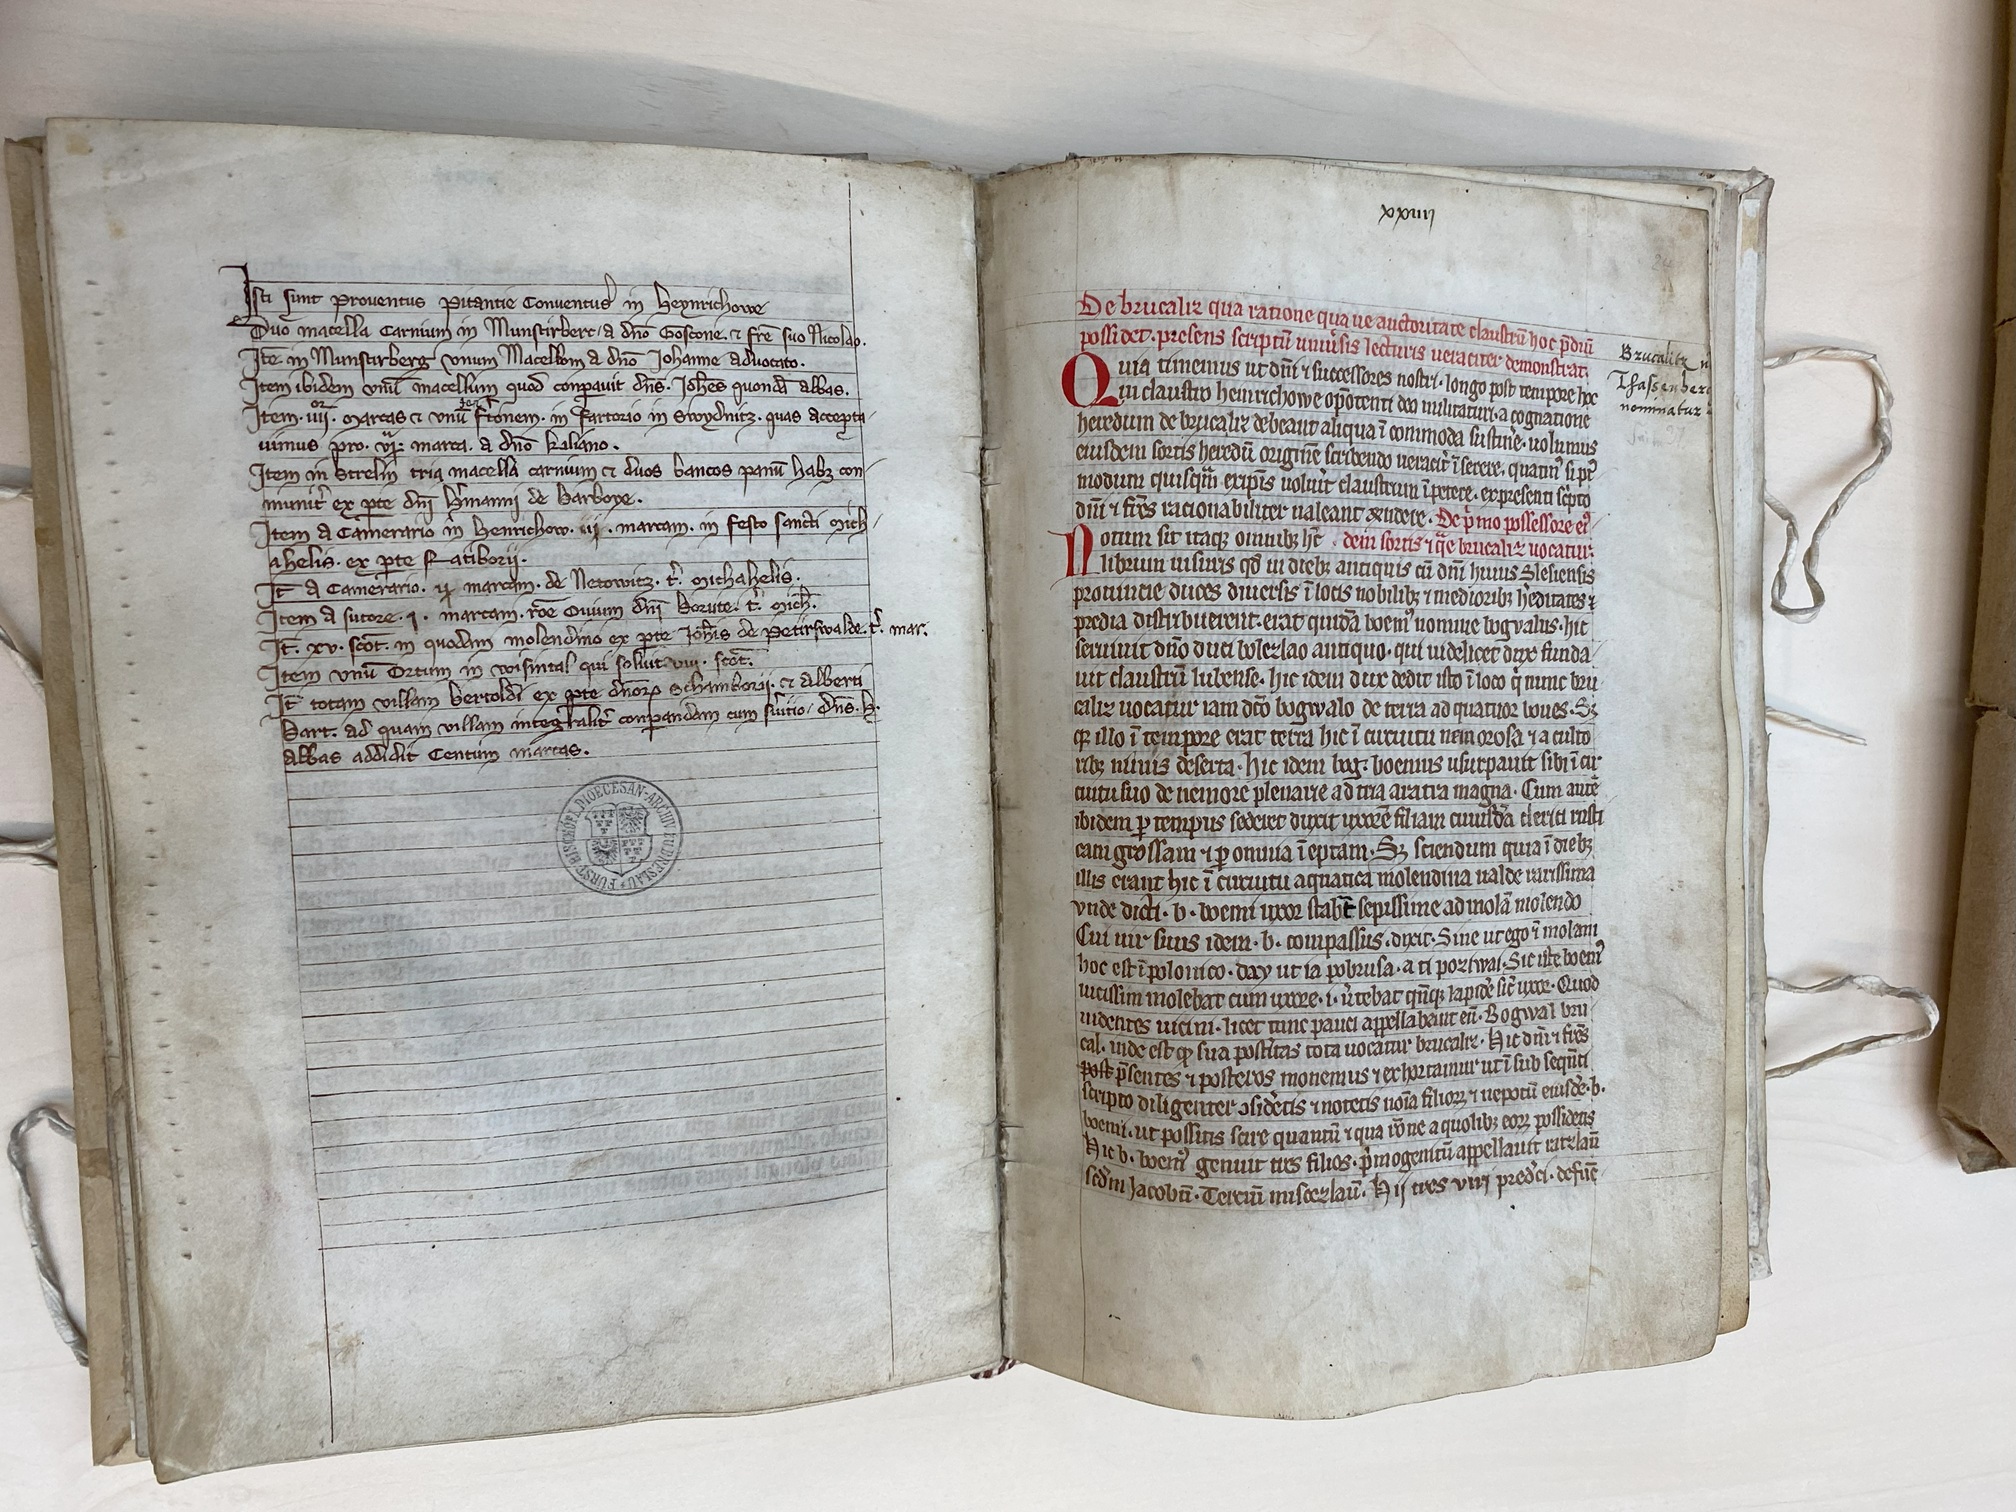 Isti sunt proventus pitantie Conventus in Heynrichowe
Duo macella Carnium in Munstirberc a dno Goscone. et fre suo Nicolao.
Ite in Munstirberg unum Macellom a dno Johanne advocato.
Item ibidem unu macellum quod conparavit dns. Johes quonda abbas.
Item. iiii. marcas et unu ftonem. in fartorio in Swydnitz. quas accepta-
vimus pro. marca. a dno Kiliano.
Item in Strelin tria macella carnium et duos bancos panu habz con-
munit ex pte dni Hmanni de Barboye.
Item a Camerario in Henrichow. iii. marcam. in festo sancti Mich-
ahelis. ex pte Ratiborii.
It a Camerario. marcam. de Netowitz. t. michahelis.
Item a sutore. marcam. roe Ovium dni Borute. t. mich.
It. xv. scot. in quodam molendino ex pte Johis de Petirswalde. t. mar.
Item unu Ortum in wisintal qui solvit viii. scot.
It totam villam bertoldi ex pte dnorz Schamborii. et alberti
Bart. ad quam villam integraliter conparandam cum suitio. dns. h.
abbas addidit Centum marcas.
FÜRSTBISCHÖFL. DIOECESAN-ARCHIV ZU BRESLAU
xxiiii
24
De brucaliz qua ratione qua ue auctoritate claustru hoc pdiu
possidet. presens scriptu uniusis lecturis ueraciter demonstrat.
Brucalitz
Thassenberc
nominatur
Quia timemus ut dni i successores nostri. longo post tempore hoc
in claustro heinrichowe opotenti deo militaturi. a cognatione
heredum de brucaliz debeant aliqua i commoda sustine. uolumus
eiusdem sortis heredu origine scribendo ueracit iserere. quatin si pt
modum quisqm exipis voluit claustrum ipetere. expresenti scpto
dni i fres racionabiliter ualeant ndere. De pmo possessore ei
Notum sit itaqz omnibz hc dem sortis i qre brucaliz vocatur.
librum uisuris qd in diebz antiquis cu dni huius Slesiensis
prouincie duces diuersis i locis nobilibz i mediocribz heditates i
predia distribuerent. erat quida boem nomine bogvalus. hic
seruiuit dno duci bolezlao antiquo. qui uidelicet dux funda
uit claustru lubense. hic idem dux dedit isto i loco q nunc bru
caliz uocatur iam dco bogwalo de terra ad quatuor boues. Sz
qz illo i tempore erat terra hic i circuitu nemorosa i a culto
ribz nimis deserta. hic idem bog. boemus usurpauit sibi i cir
cuitu suo de nemore plenarie ad tria aratra magna. Cum aute
ibidem p tempus sederet duxit uxore filiam cuiusda clerici rusti
cam grossam i p omnia i eptam. Sz sciendum quia i diebz
illis erant hic i circuitu aquatica molendina ualde rarissima
vnde dicti. b. boemi uxor stabat sepissime ad mola molendo
Cui uir suus idem. b. compassus. dixit. Sine ut ego i molam
hoc est i polonico. day ut ia pobrusa. a ti poziwai. Sic iste boem
uicissim molebat cum uxore. i. utebat qnqz lapide sic uxor. Quod
uidentes uicini. licet tunc pauci appellabant eu. Bogwal bru
cal. inde est qz sua postitas tota uocatur brucaliz. Hic dni i fres
post psentes i posteros monemus i exhortamur ut i sub sequeti
scripto diligenter osidetis i notetis noia filiorz i nepotu eiusde. b.
boemi. ut possitis scire quantu i qua rone a quolibz eorz possidetis
Hic b. boem genuit tres filios. pmogenitu appellauit raczlau
scdm Jacobu. Terciu miscezlau. Hij tres viri predci. defue